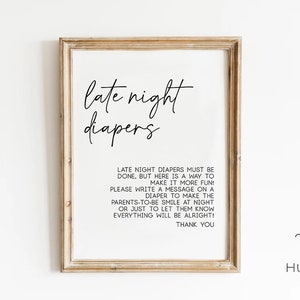 late night
diapers
LATE NIGHT DIAPERS MUST BE
DONE, BUT HERE IS A WAY TO
MAKE IT MORE FUN!
PLEASE WRITE A MESSAGE ON A
DIAPER TO MAKE THE
PARENTS-TO-BE SMILE AT NIGHT
OR JUST TO LET THEM KNOW
EVERYTHING WILL BE ALRIGHT!
THANK YOU